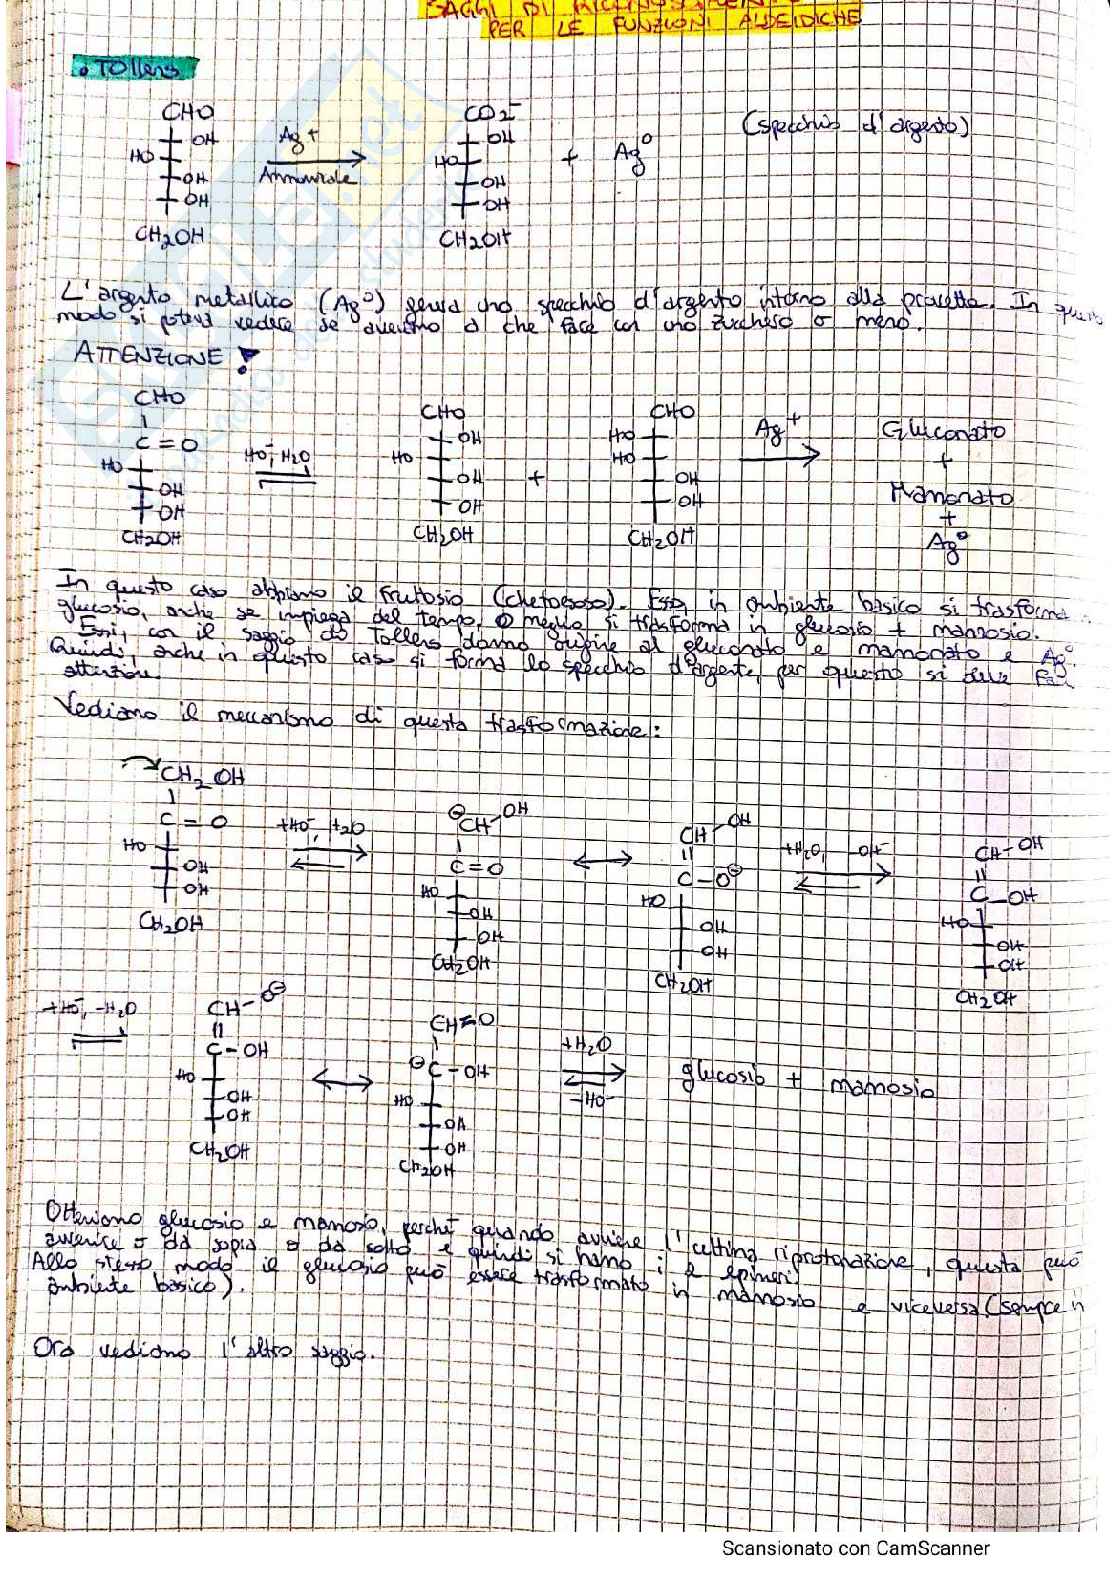 SAGGI DI RICONOSCIMENTO
PER LE FUNZIONI ALDEIDICHE
• Tollens
CHO
OH
HO
OH
OH
CH2OH
Ag+
Ammoniale
CO2-
OH
HO
OH
OH
CH2OH
+ Ag0
(specchio d'argento)
L'argento metallico (Ag0) genera uno specchio d'argento intorno alla provetta. In questo
modo si poteva vedere se avevamo a che fare con uno zucchero o meno.
ATTENZIONE!
CHO
C=O
HO
OH
OH
CH2OH
HO-, H2O
CHO
OH
HO
OH
OH
CH2OH
+
CHO
HO
HO
OH
OH
CH2OH
Ag+
Gluconato
+
Mannonato
+
Ag0
In questo caso abbiamo il Fruttosio (chetoesoso). Esso, in ambiente basico si trasforma in
glucosio, anche se impiega del tempo, o meglio si trasforma in glucosio + mannosio.
Essi, con il saggio di Tollens danno origine al gluconato e mannonato e Ag0.
Quindi, anche in questo caso si forma lo specchio d'argento, per questo si deve fare
attenzione.
Vediamo il meccanismo di questa trasformazione:
CH2OH
C=O
HO
OH
OH
CH2OH
+HO-, H2O
⊖CH-OH
C=O
HO
OH
OH
CH2OH
CH-OH
C-O⊖
HO
OH
OH
CH2OH
+H2O, -OH-
CH-OH
C-OH
HO
OH
OH
CH2OH
+HO-, -H2O
CH-O⊖
C-OH
HO
OH
OH
CH2OH
CH=O
⊖C-OH
HO
OH
OH
CH2OH
+H2O
-HO-
glucosio + mannosio
Otteniamo glucosio e mannosio, perché quando avviene l'ultima riprotonazione, questa può
avvenire o da sopra o da sotto e quindi si hanno i 2 epimeri.
Allo stesso modo il glucosio può essere trasformato in mannosio e viceversa (sempre in
ambiente basico).
Ora vediamo l'altro saggio.
Scansionato con CamScanner